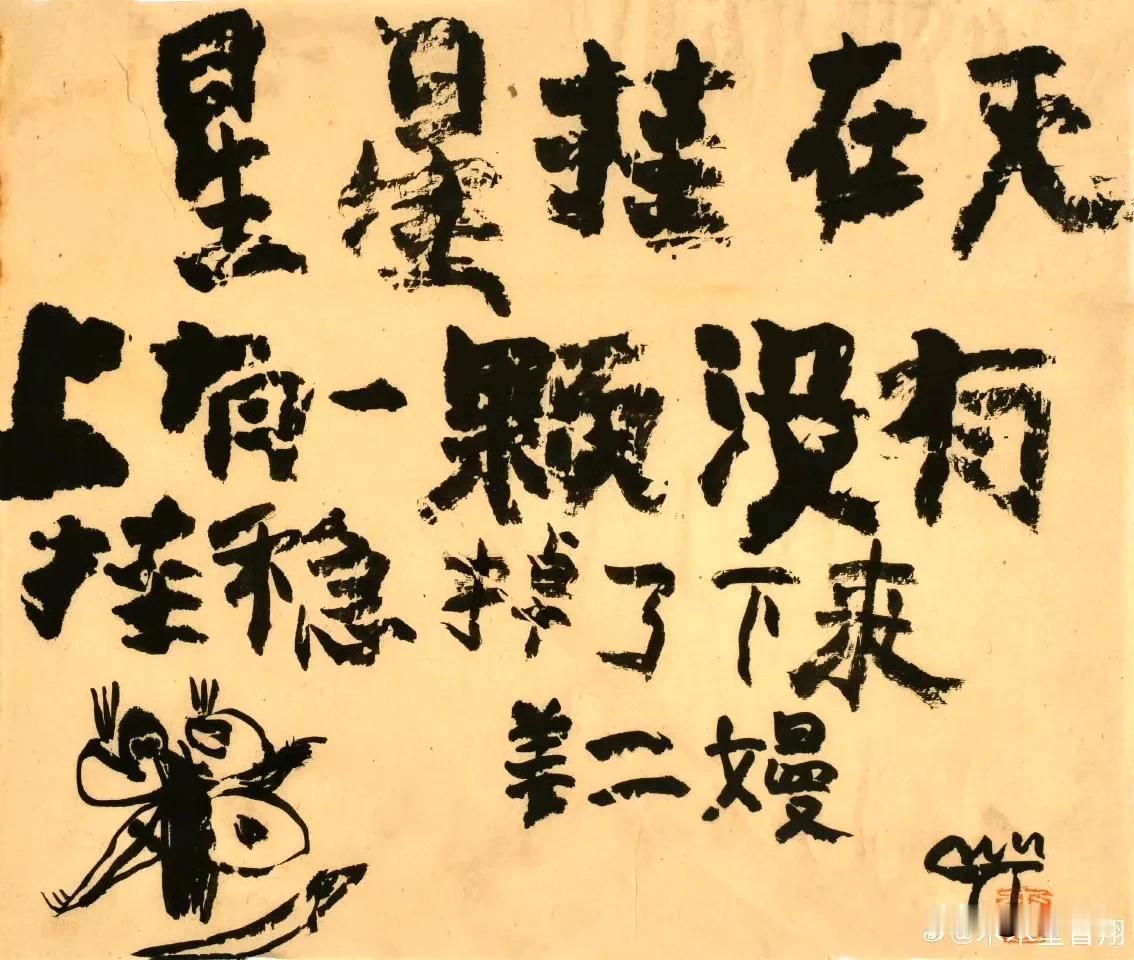 星星挂在天
上有一颗没有
挂稳掉了下来
姜二嫚